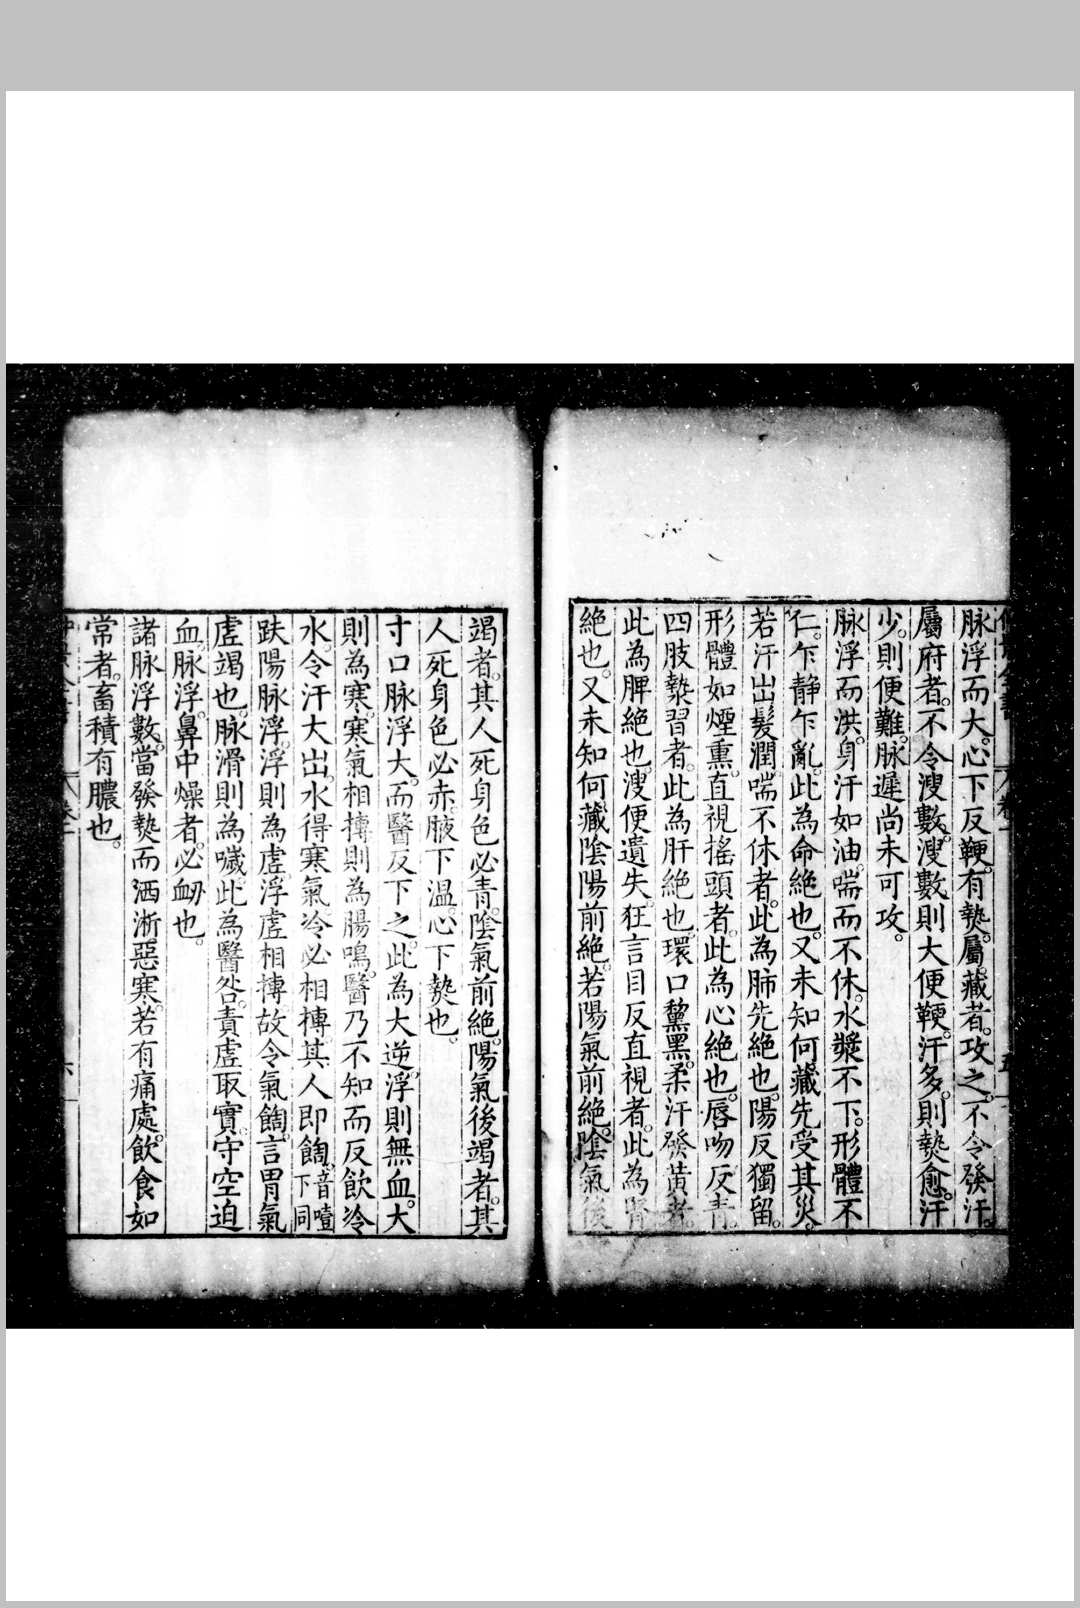 脉浮而大。心下反鞕。有㷍。屬藏者。攻之。不令發汗。
屬府者。不令溲數。溲數則大便鞕。汗多。則㷍愈。汗
少。則便難。脉遲尚未可攻。
脉浮而洪。身汗如油。喘而不休。水漿不下。形體不
仁。乍靜乍亂。此為命絶也。又未知何藏先受其災。
若汗出髮潤。喘不休者。此為肺先絶也。陽反獨留。
形體如煙熏。直視搖頭者。此為心絶也。唇吻反青。
四肢漐習者。此為肝絶也。環口黧黑。柔汗發黃者。
此為脾絶也。溲便遺失。狂言目反直視者。此為腎
絶也。又未知何藏陰陽前絶。若陽氣前絶。陰氣後
竭者。其人死身色必青。陰氣前絶。陽氣後竭者。其
人死身色必赤。腋下溫。心下㷍也。
寸口脉浮大。而醫反下之。此為大逆。浮則無血。大
則為寒。寒氣相摶則為腸鳴。醫乃不知而反飲冷
水。令汗大出。水得寒氣。冷必相摶。其人即䭇。音噎下同
趺陽脉浮。浮則為虛。浮虛相摶。故令氣䭇。言胃氣
虛竭也。脉滑則為噦。此為醫咎。責虛取實。守空迫
血。脉浮。鼻中燥者。必衂也。
諸脉浮數。當發㷍而洒淅惡寒。若有痛處。飲食如
常者。畜積有膿也。